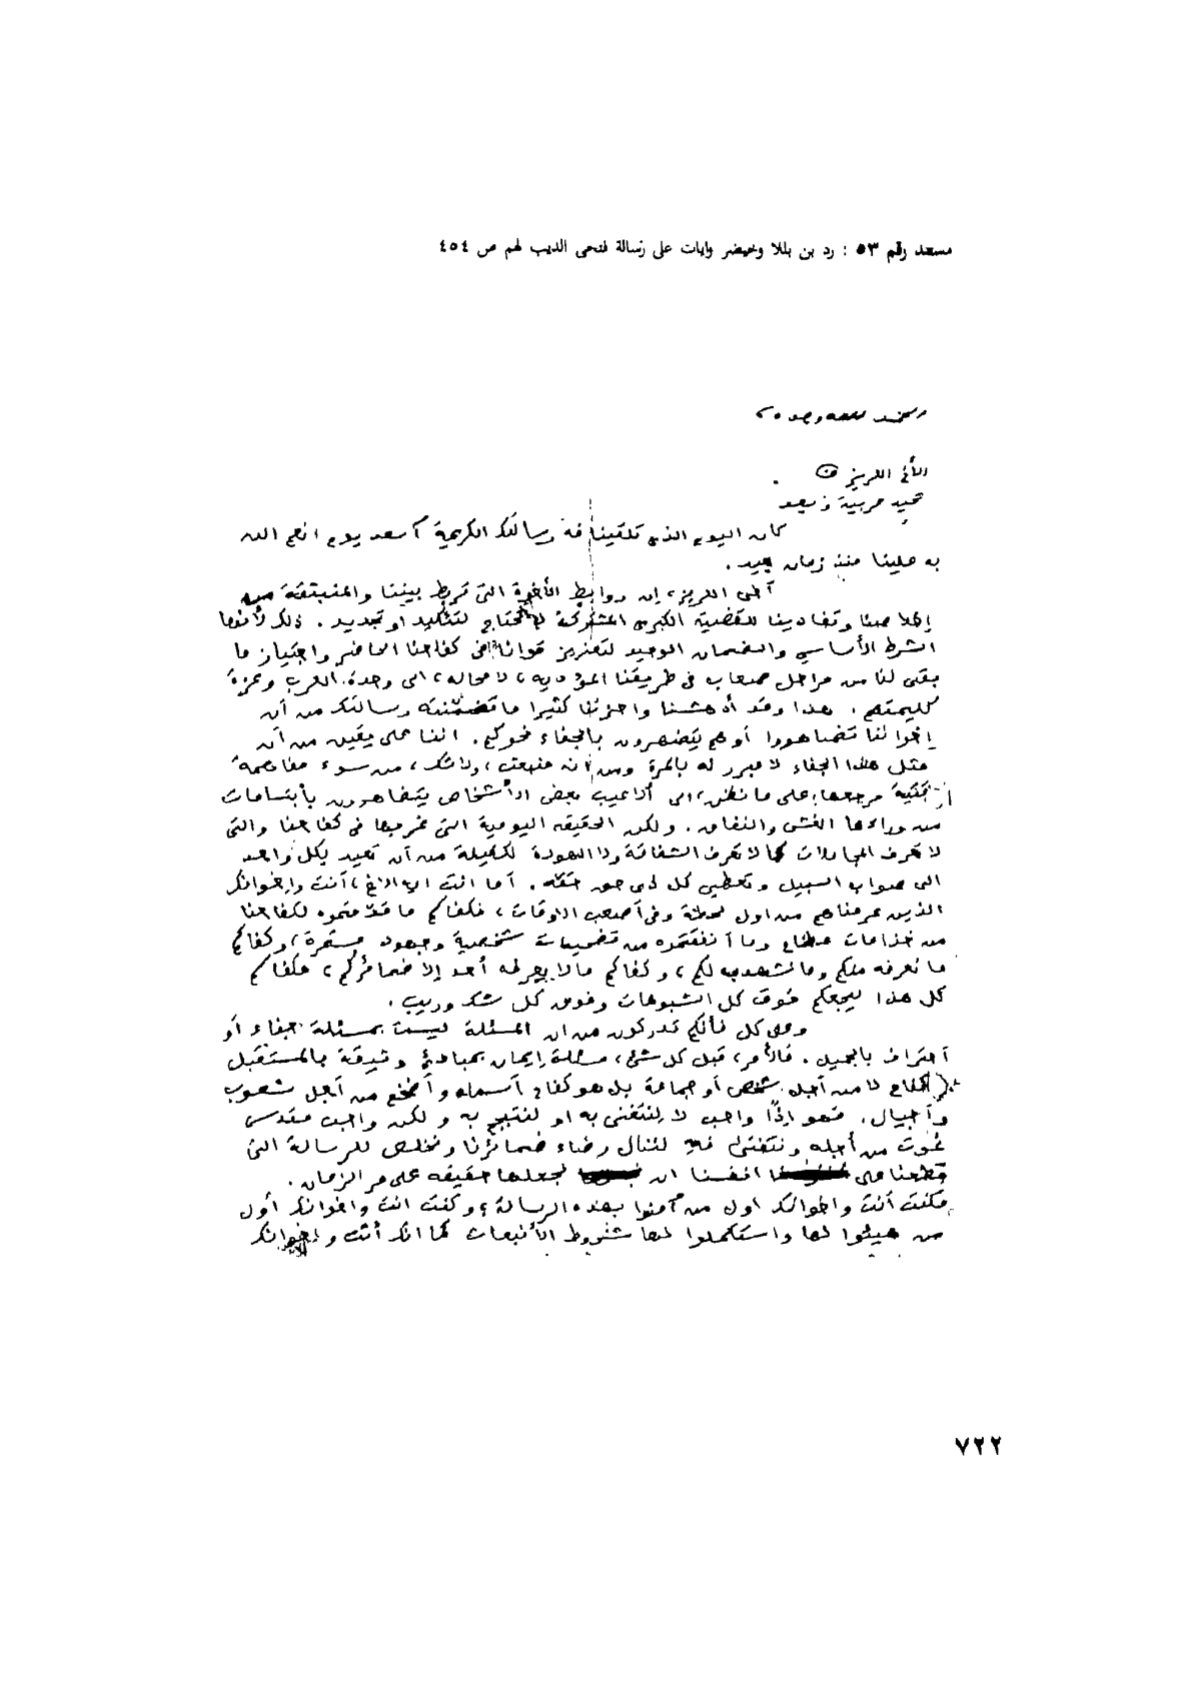 مستند رقم ٥٣ : رد بن بللا وخيضر وايات على رسالة فتحى الديب لهم ص ٤٥٤
الأخ العزيز ف
تحية عربية وبعد
كان اليوم الذى تلقينا فه رسالتك الكريمة أسعد يوم انعم الله
به علينا منذ زمان بعيد .
أخى العزيز، إن روابط الأخوة التى تربط بيننا والمنبثقة من
إخلاصنا وتفانينا للقضية الكبرى المشتركة لا تحتاج لتأكيد او تجديد . ذلك لأنها
الشرط الأساسي والضمان الوحيد لتعزيز قوانا فى كفاحنا الحاضر واجتياز ما
بقى لنا من مراحل صعاب فى طريقنا المؤديه، لا محاله، الى وحدة العرب وعزة
كليمتهم . هذا وقد أدهشنا واحزننا كثيرا ما تضمنته رسالتك من أن
إخواننا تضاهروا أو هم يتضهرون بالجفاء نحوكم . اننا على يقين من أن
مثل هذا الجفاء لا مبرر له بالمرة وانه منبعث، ولا شك، من سوء مفاهمة
مرجعها، على ما نظن، الى ألاعيب بعض الأشخاص يتضاهرون بأبتسامات
من وراءها الغش والنفاق . ولكن الحقيقه اليومية التى نعرفها فى كفاحنا والتى
لا تعرف المجاملات كما لا تعرف الشفاقة ولا الهودة لكفيلة من أن تعيد بكل واحد
الى صواب السبيل وتعطي كل ذى حق حقه . أما انت الاخ ، أنت وإخوانك
الذين عرفناهم من اول لحظة وفى أصعب الاوقات ، فكفاكم ما قدمتموه لكفاحنا
من خدامات وما أنفقتموه من تضحيات شخصية وجهود مستمرة، وكفاكم
ما نعرفه منكم وما نشهد به لكم، وكفاكم ما لا يعرفه أحد إلا ضمائركم ، فكفاكم
كل هذا ليجعلكم فوق كل الشبوهات وفوق كل شك وريب .
وعلى كل فأنكم تدركون من ان المسئلة ليست بمسئلة جفاء أو
أعتراف بالجميل . فالأمر، قبل كل شئ، مسئلة إيمان بمبادئ وثيقة بالمستقبل
كفاح لا من أجل شخص أو جماعة بل هو كفاح أسماه وأضخم من أجل شعوب
وأجيال . فهو إذًا واجب لا لنتغنى به او لنتبجح به ولكن واجب مقدس
نموت من أجله ونتفنى فيه لننال رضاء ضمائرنا ونخلص للرسالة التى
قطعنا على انفسنا ان نجعلها حقيقه على مر الزمان .
فكنت أنت واخوانك اول من آمنوا بهذه الرسالة ، وكنت انت واخوانك أول
من هيئوا لها واستكملوا لها شروط الأنبعاث كما انك أنت وإخوانك
٧٢٢